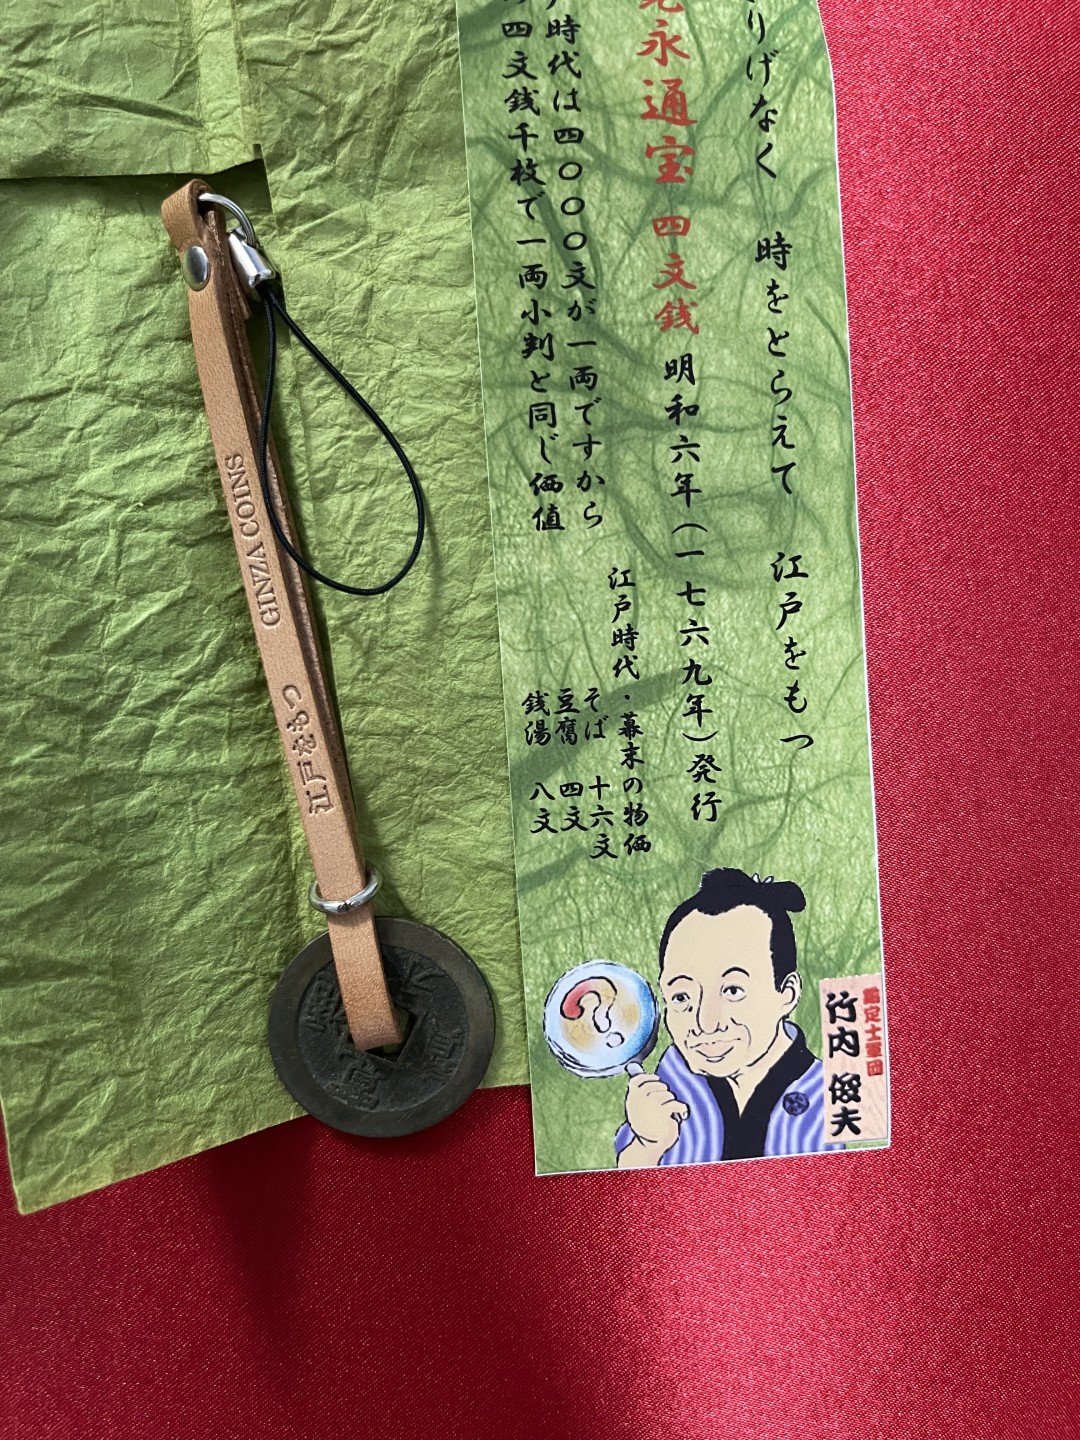 りげなく 時をとらえて 江戸をもつ
永通宝 四文銭 明和六年(一七六九年)発行
時代は四〇〇〇文が一両ですから
四文銭千枚で一両小判と同じ価値
江戸時代・幕末の物価
そば 十六文
豆腐 四文
銭湯 八文
鑑定士軍団
竹内 俊夫
GINZA COINS
江戸をもつ
寛永通宝